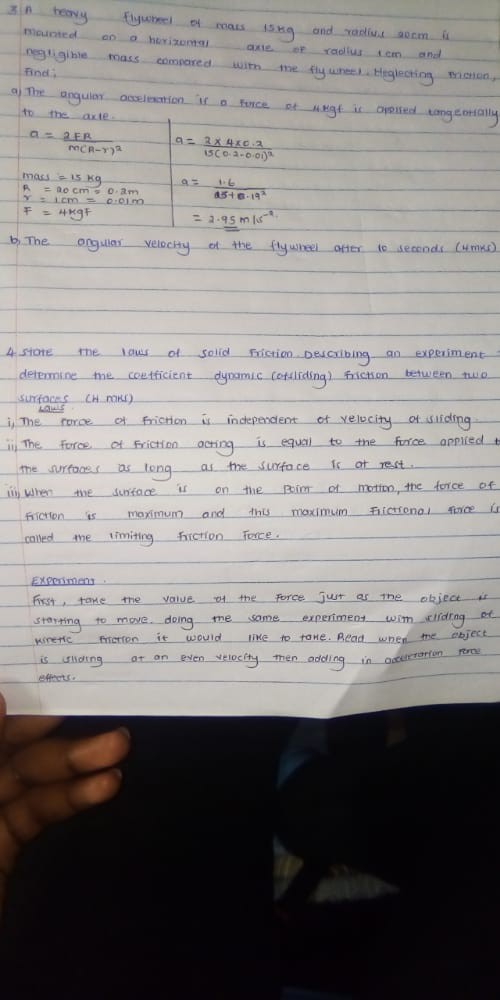 3. A heavy flywheel of mass 15kg and radius 20cm is
mounted on a horizontal axle of radius 1cm and
negligible mass compared with the flywheel. Neglecting friction,
find;
a) The angular acceleration if a force of 4kgf is applied tangentially
to the axle.
a = 2FR / m(R-r)²
a = 2 x 4 x 0.2 / 15(0.2-0.01)²
mass = 15 kg
R = 20 cm = 0.2m
r = 1cm = 0.01m
F = 4kgf
a = 1.6 / 15+0.19²
= 2.95 m/s⁻²
b) The angular velocity of the flywheel after 10 seconds (4mks)
4. State the laws of solid friction. Describing an experiment
determine the coefficient dynamic (of sliding) friction between two
surfaces (4 mks)
Laws
i) The force of friction is independent of velocity of sliding.
ii) The force of friction acting is equal to the force applied t
the surfaces as long as the surface is at rest.
iii) When the surface is on the point of motion, the force of
friction is maximum and this maximum frictional force is
called the limiting friction force.
Experiment.
First, take the value of the force just as the object is
starting to move. doing the same experiment with sliding or
kinetic friction it would like to take. Read when the object
is sliding at an even velocity then adding in acceleration force
effects.